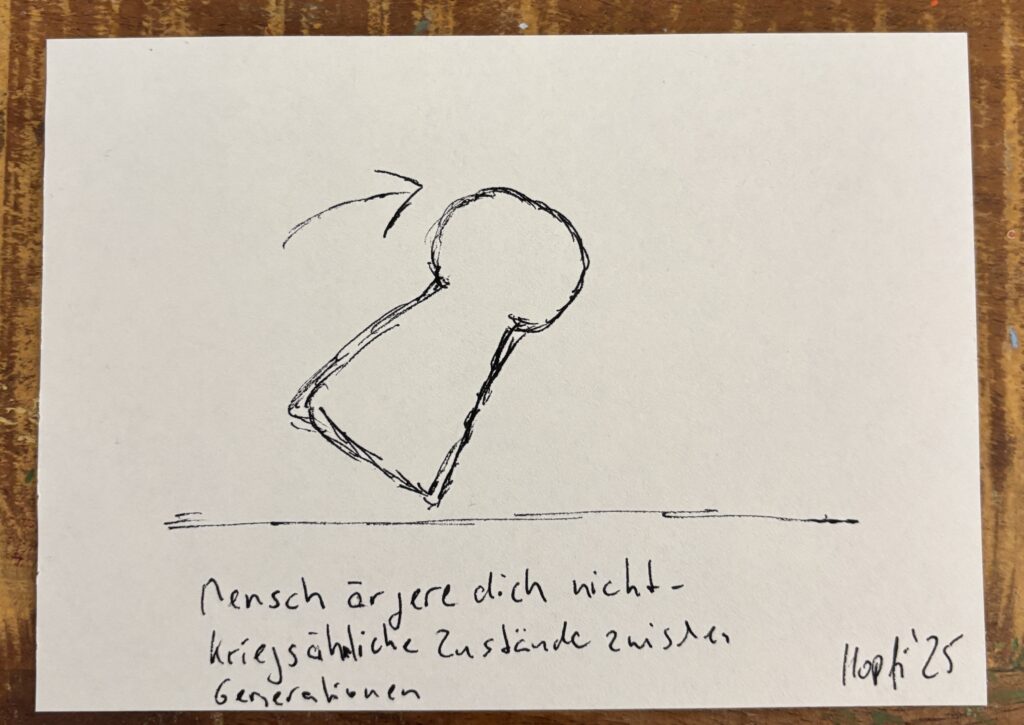 Mensch ärgere dich nicht-
kriegsähnliche Zustände zwischen
Generationen
Hopfi '25